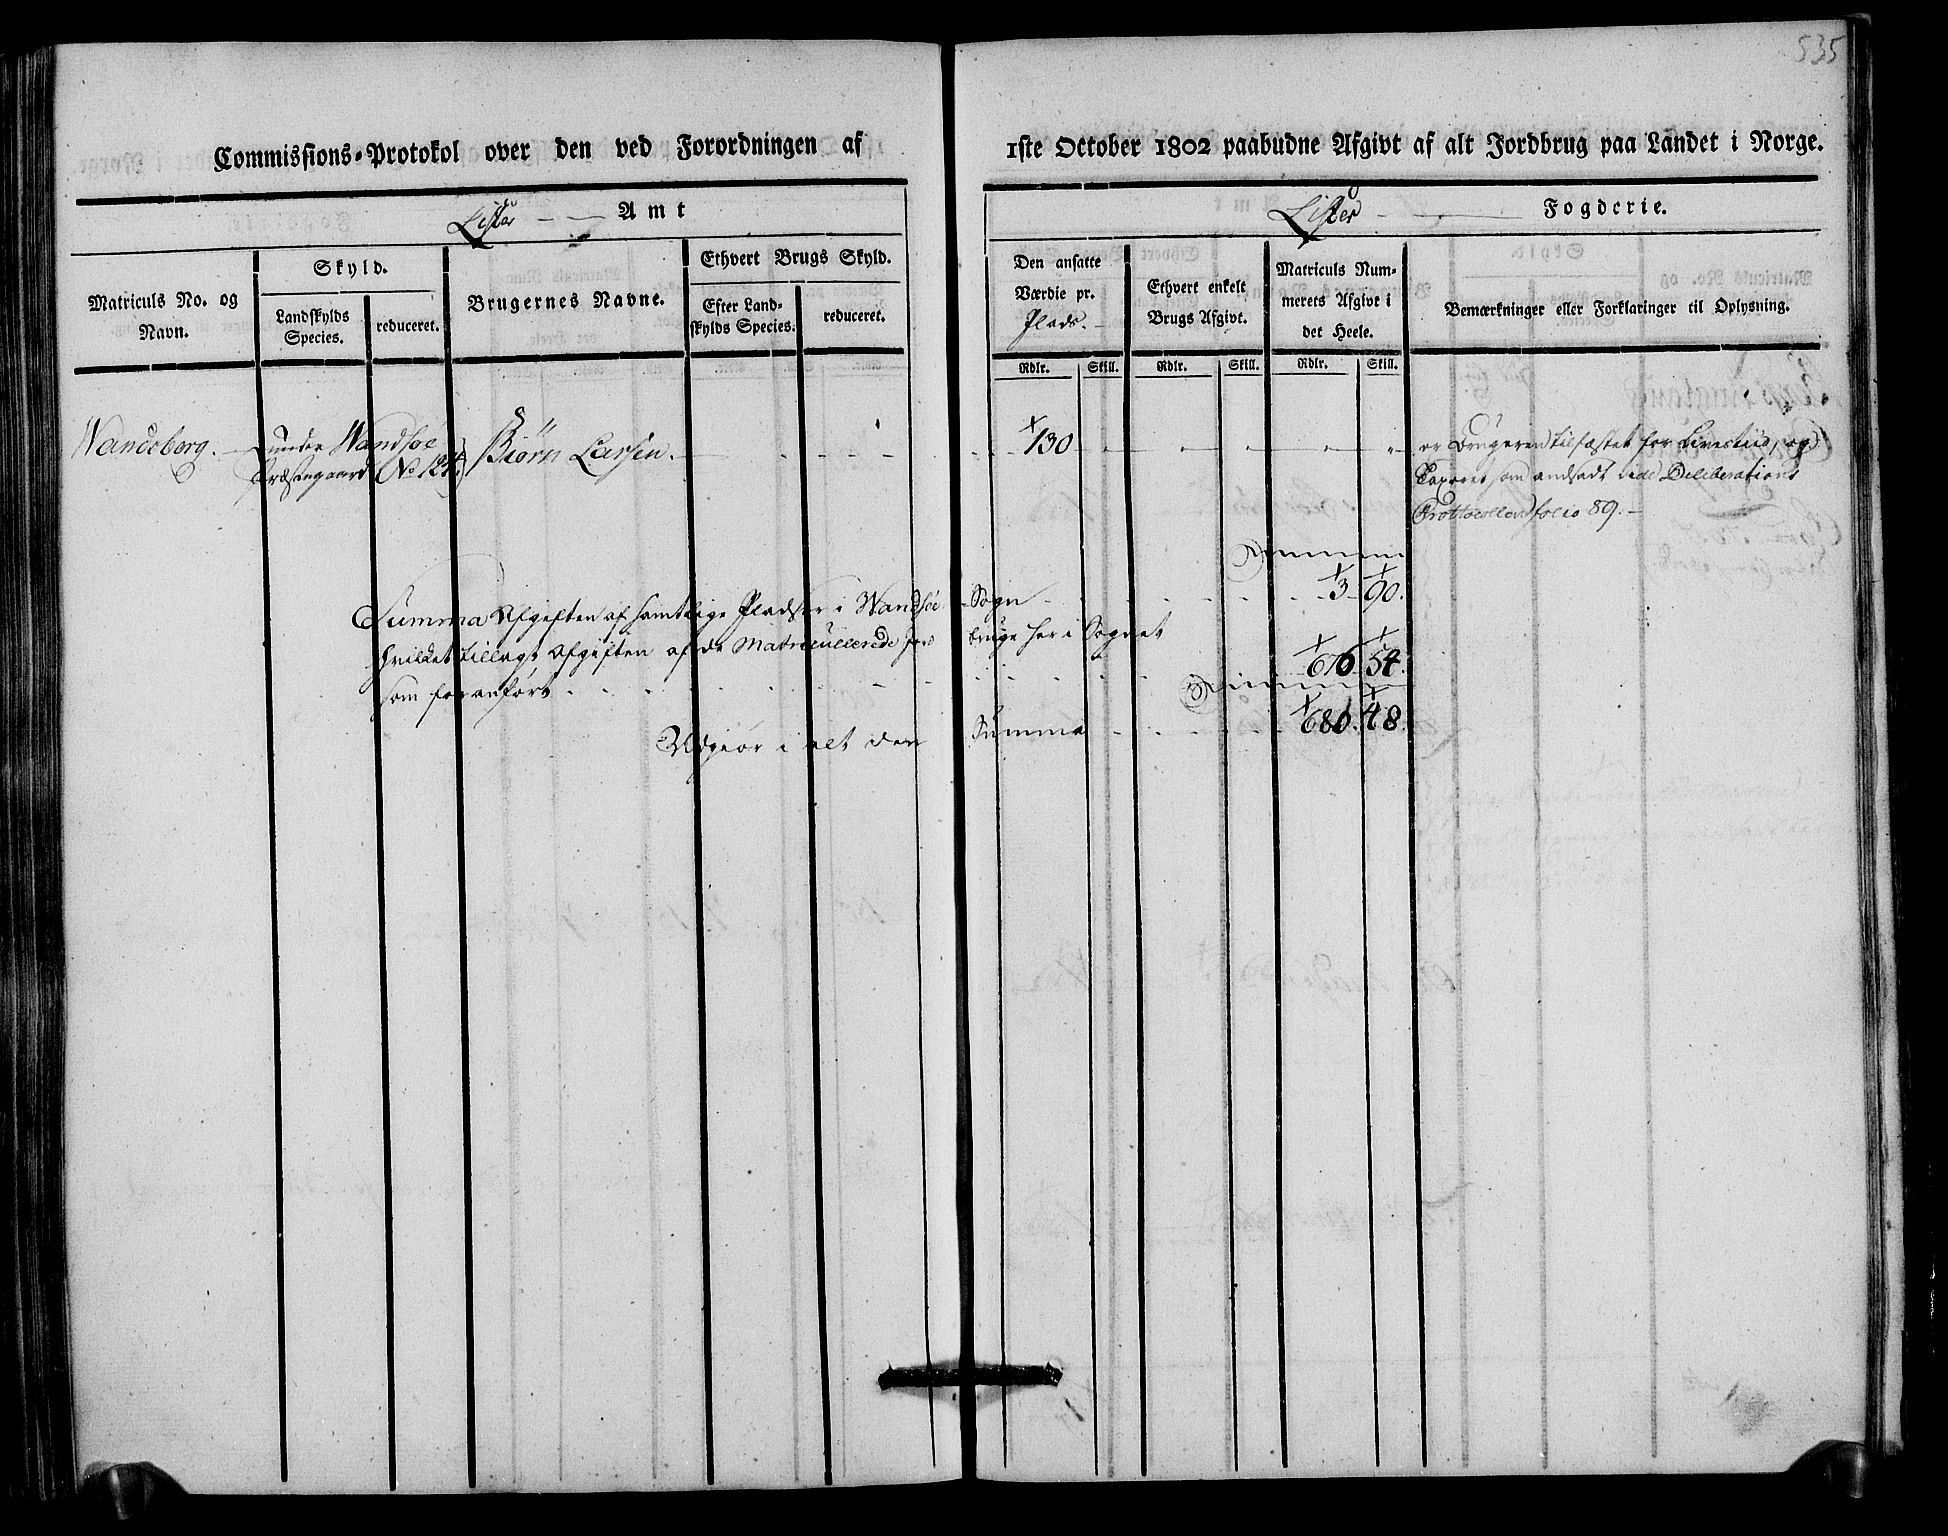 535
Commissions-Protokol over den ved Forordningen af 1ste October 1802 paabudne Afgivt af alt Jordbrug paa Landet i Norge.
Lister Amt
Lister Fogderie.
Matriculs No. og Navn.
Skyld.
Landskylds Species.
reduceret.
Brugernes Navne.
Ethvert Brugs Skyld.
Efter Landskylds Species.
reduceret.
Den ansatte Værdie pr. Plads.
Ethvert enkelt Brugs Afgivt.
Matriculs Nummerets Afgivt i det Heele.
Bemærkninger eller Forklaringer til Oplysning.
Rdlr. Skill. Rdlr. Skill. Rdlr. Skill.
Wandsberg. under Wandsøe Biørn Larsen. 130 er Brugeren tilfæstet for Livstiid, og
Præstegaard No 124. Taxeret som andsadt vide Deliberations
Protocollen folio 89.
Summa Afgiften af samtlige Pladser i Wandsøe Sogn 3 90.
hvilket tillagt Afgiften af de Matriculerede Jordbruge her i Sognet
som foranført 676 54.
Udgiør i alt den Summa 680. 48.